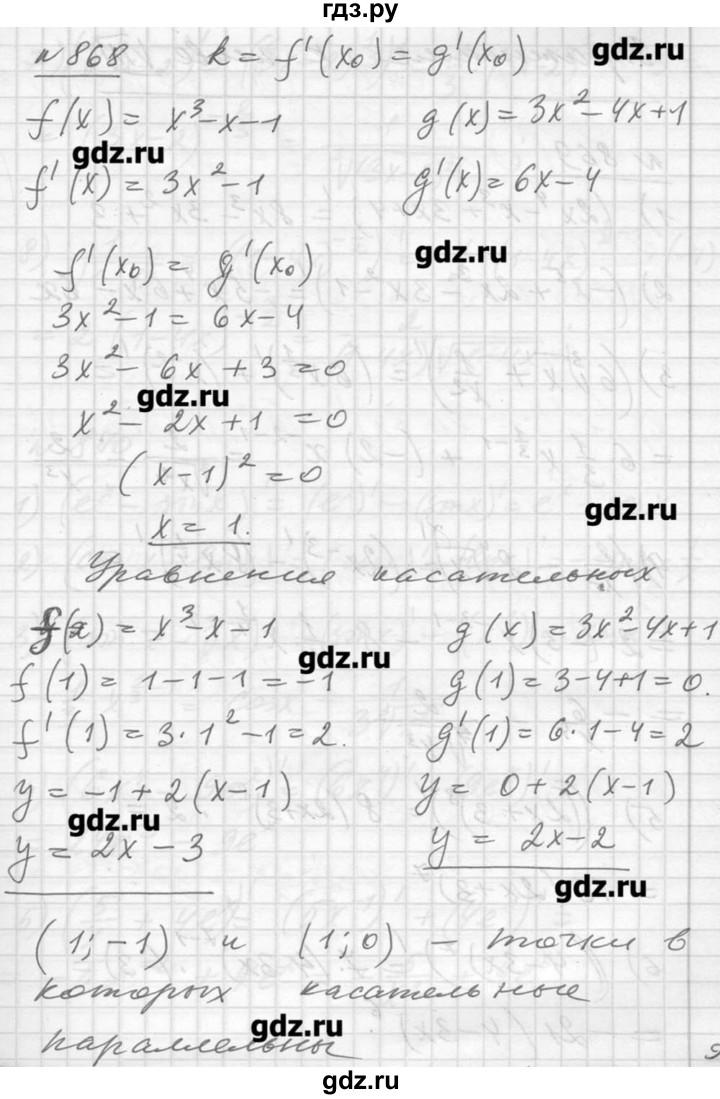 гдз.ру
№868 k = f'(x₀) = g'(x₀)
gdz.ru
f(x) = x³-x-1 g(x) = 3x²-4x+1
gdz.ru
f'(x) = 3x²-1 g'(x) = 6x-4
gdz.ru
f'(x₀) = g'(x₀)
3x²-1 = 6x-4
3x²- 6x + 3 =0
gdz.ru
x² - 2x + 1 =0
(x-1)² =0
gdz.ru
x = 1.
Уравнения касательных
f(x) = x³-x-1 g(x) = 3x²-4x+1
gdz.ru
f(1) = 1-1-1 = -1 g(1) = 3-4+1 = 0.
f'(1) = 3·1²-1 = 2. g'(1) = 6·1-4 = 2
y = -1+2(x-1) y = 0+2(x-1)
gdz.ru
y = 2x-3 y = 2x-2
gdz.ru
(1;-1) и (1;0) - точки в
которых касательные
gdz.ru
параллельны
gdz.ru